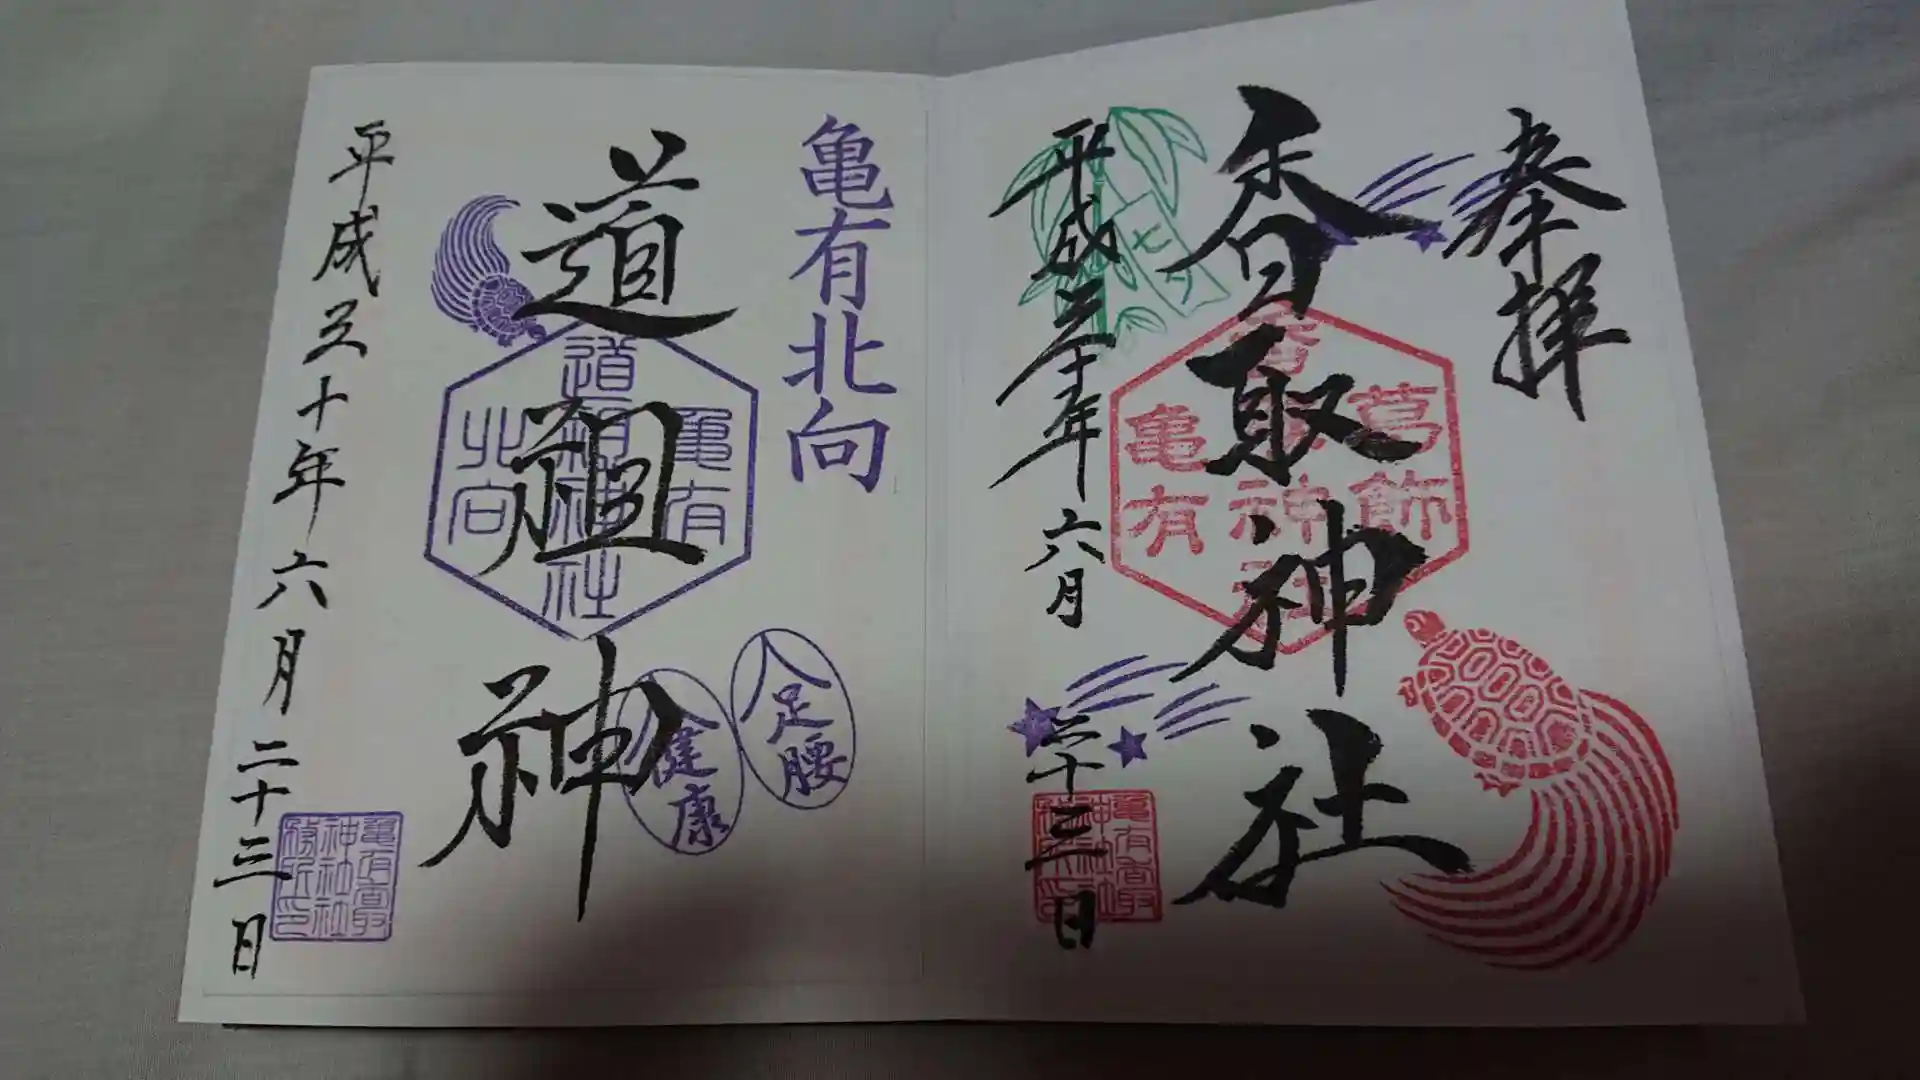 奉拝
香取神社
葛飾
香取神社
亀有
七夕
平成三十年六月二十三日
亀有香取神社
亀有北向
道祖神
亀有
道祖神社
北向
足腰
健康
平成三十年六月二十三日